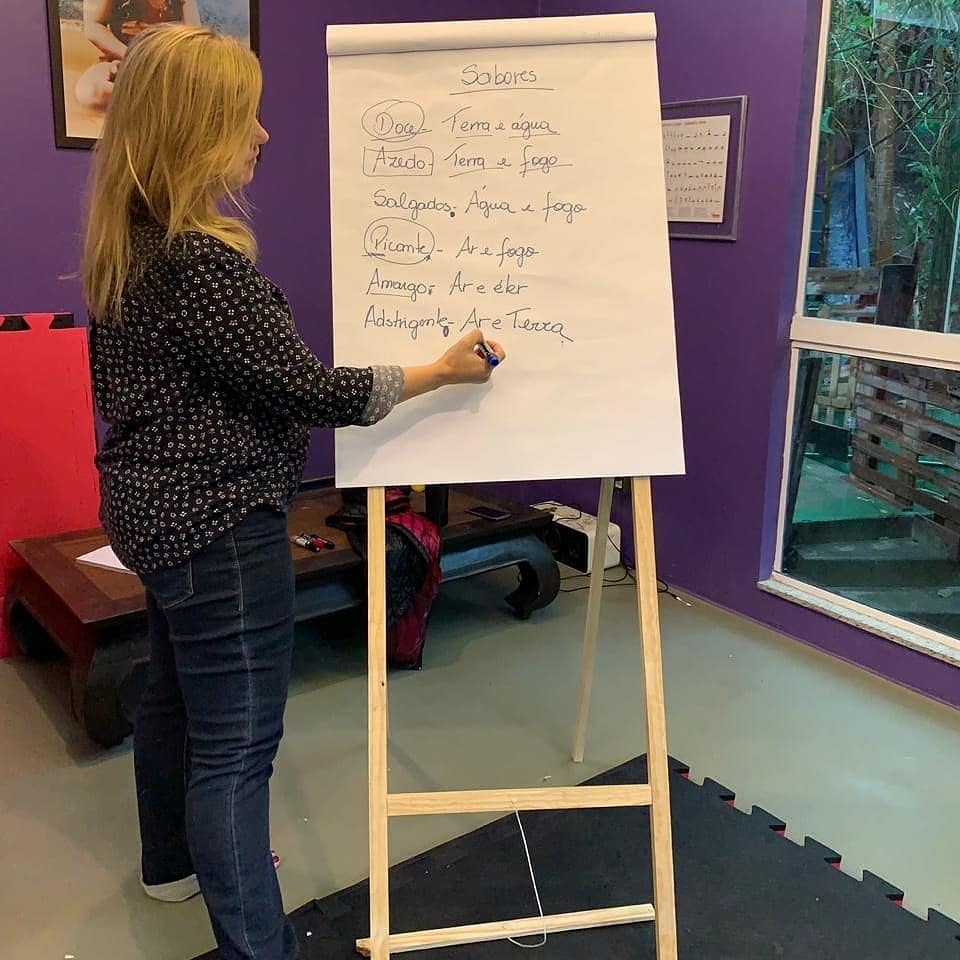 Sabores
Doce - Terra e água
Azedo - Terra e fogo
Salgados - Água e fogo
Picante - Ar e fogo
Amargo - Ar e éter
Adstrigente - Ar e Terra